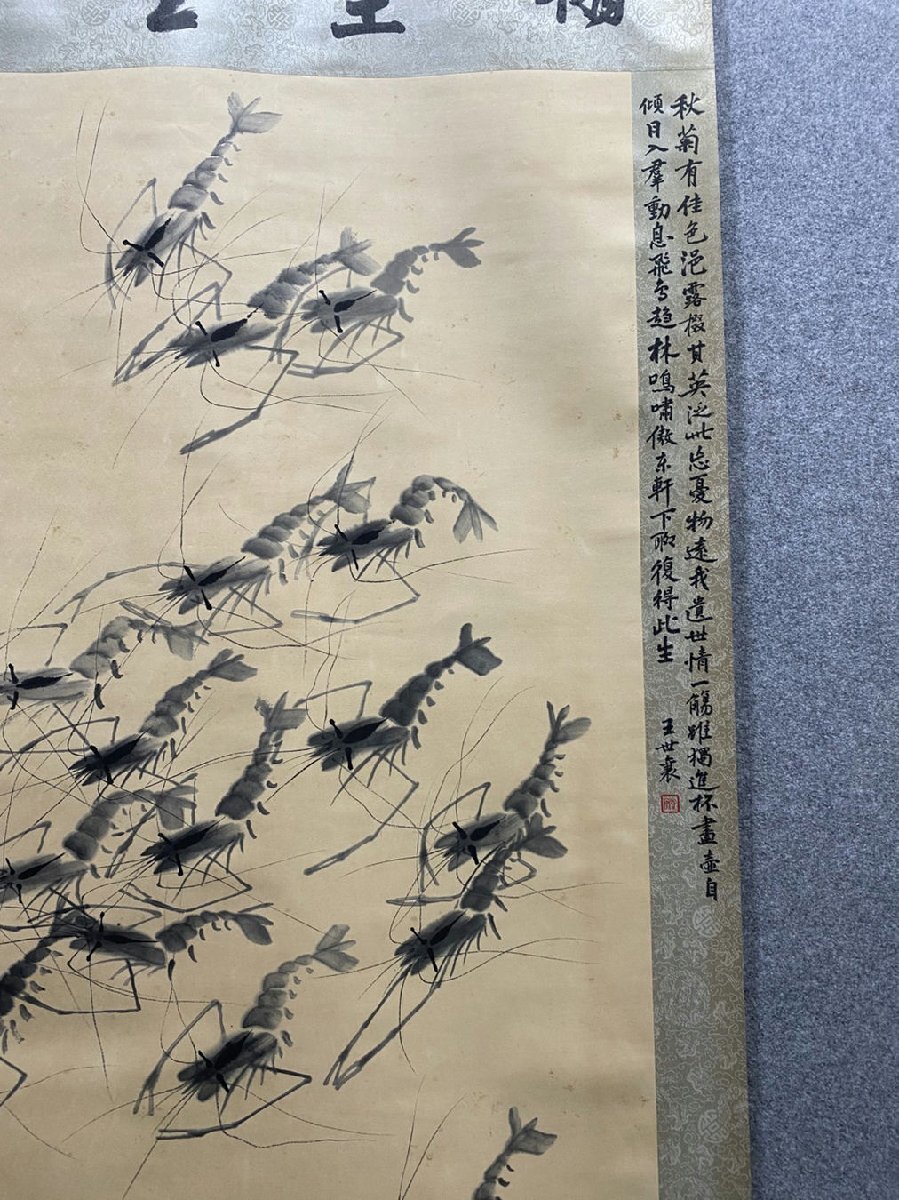 秋菊有佳色浥露掇其英泛此忘憂物遠我遺世情一觴雖獨進杯盡壺自
傾日入羣動息飛鳥趨林鳴嘯傲东軒下聊復得此生
王世襄